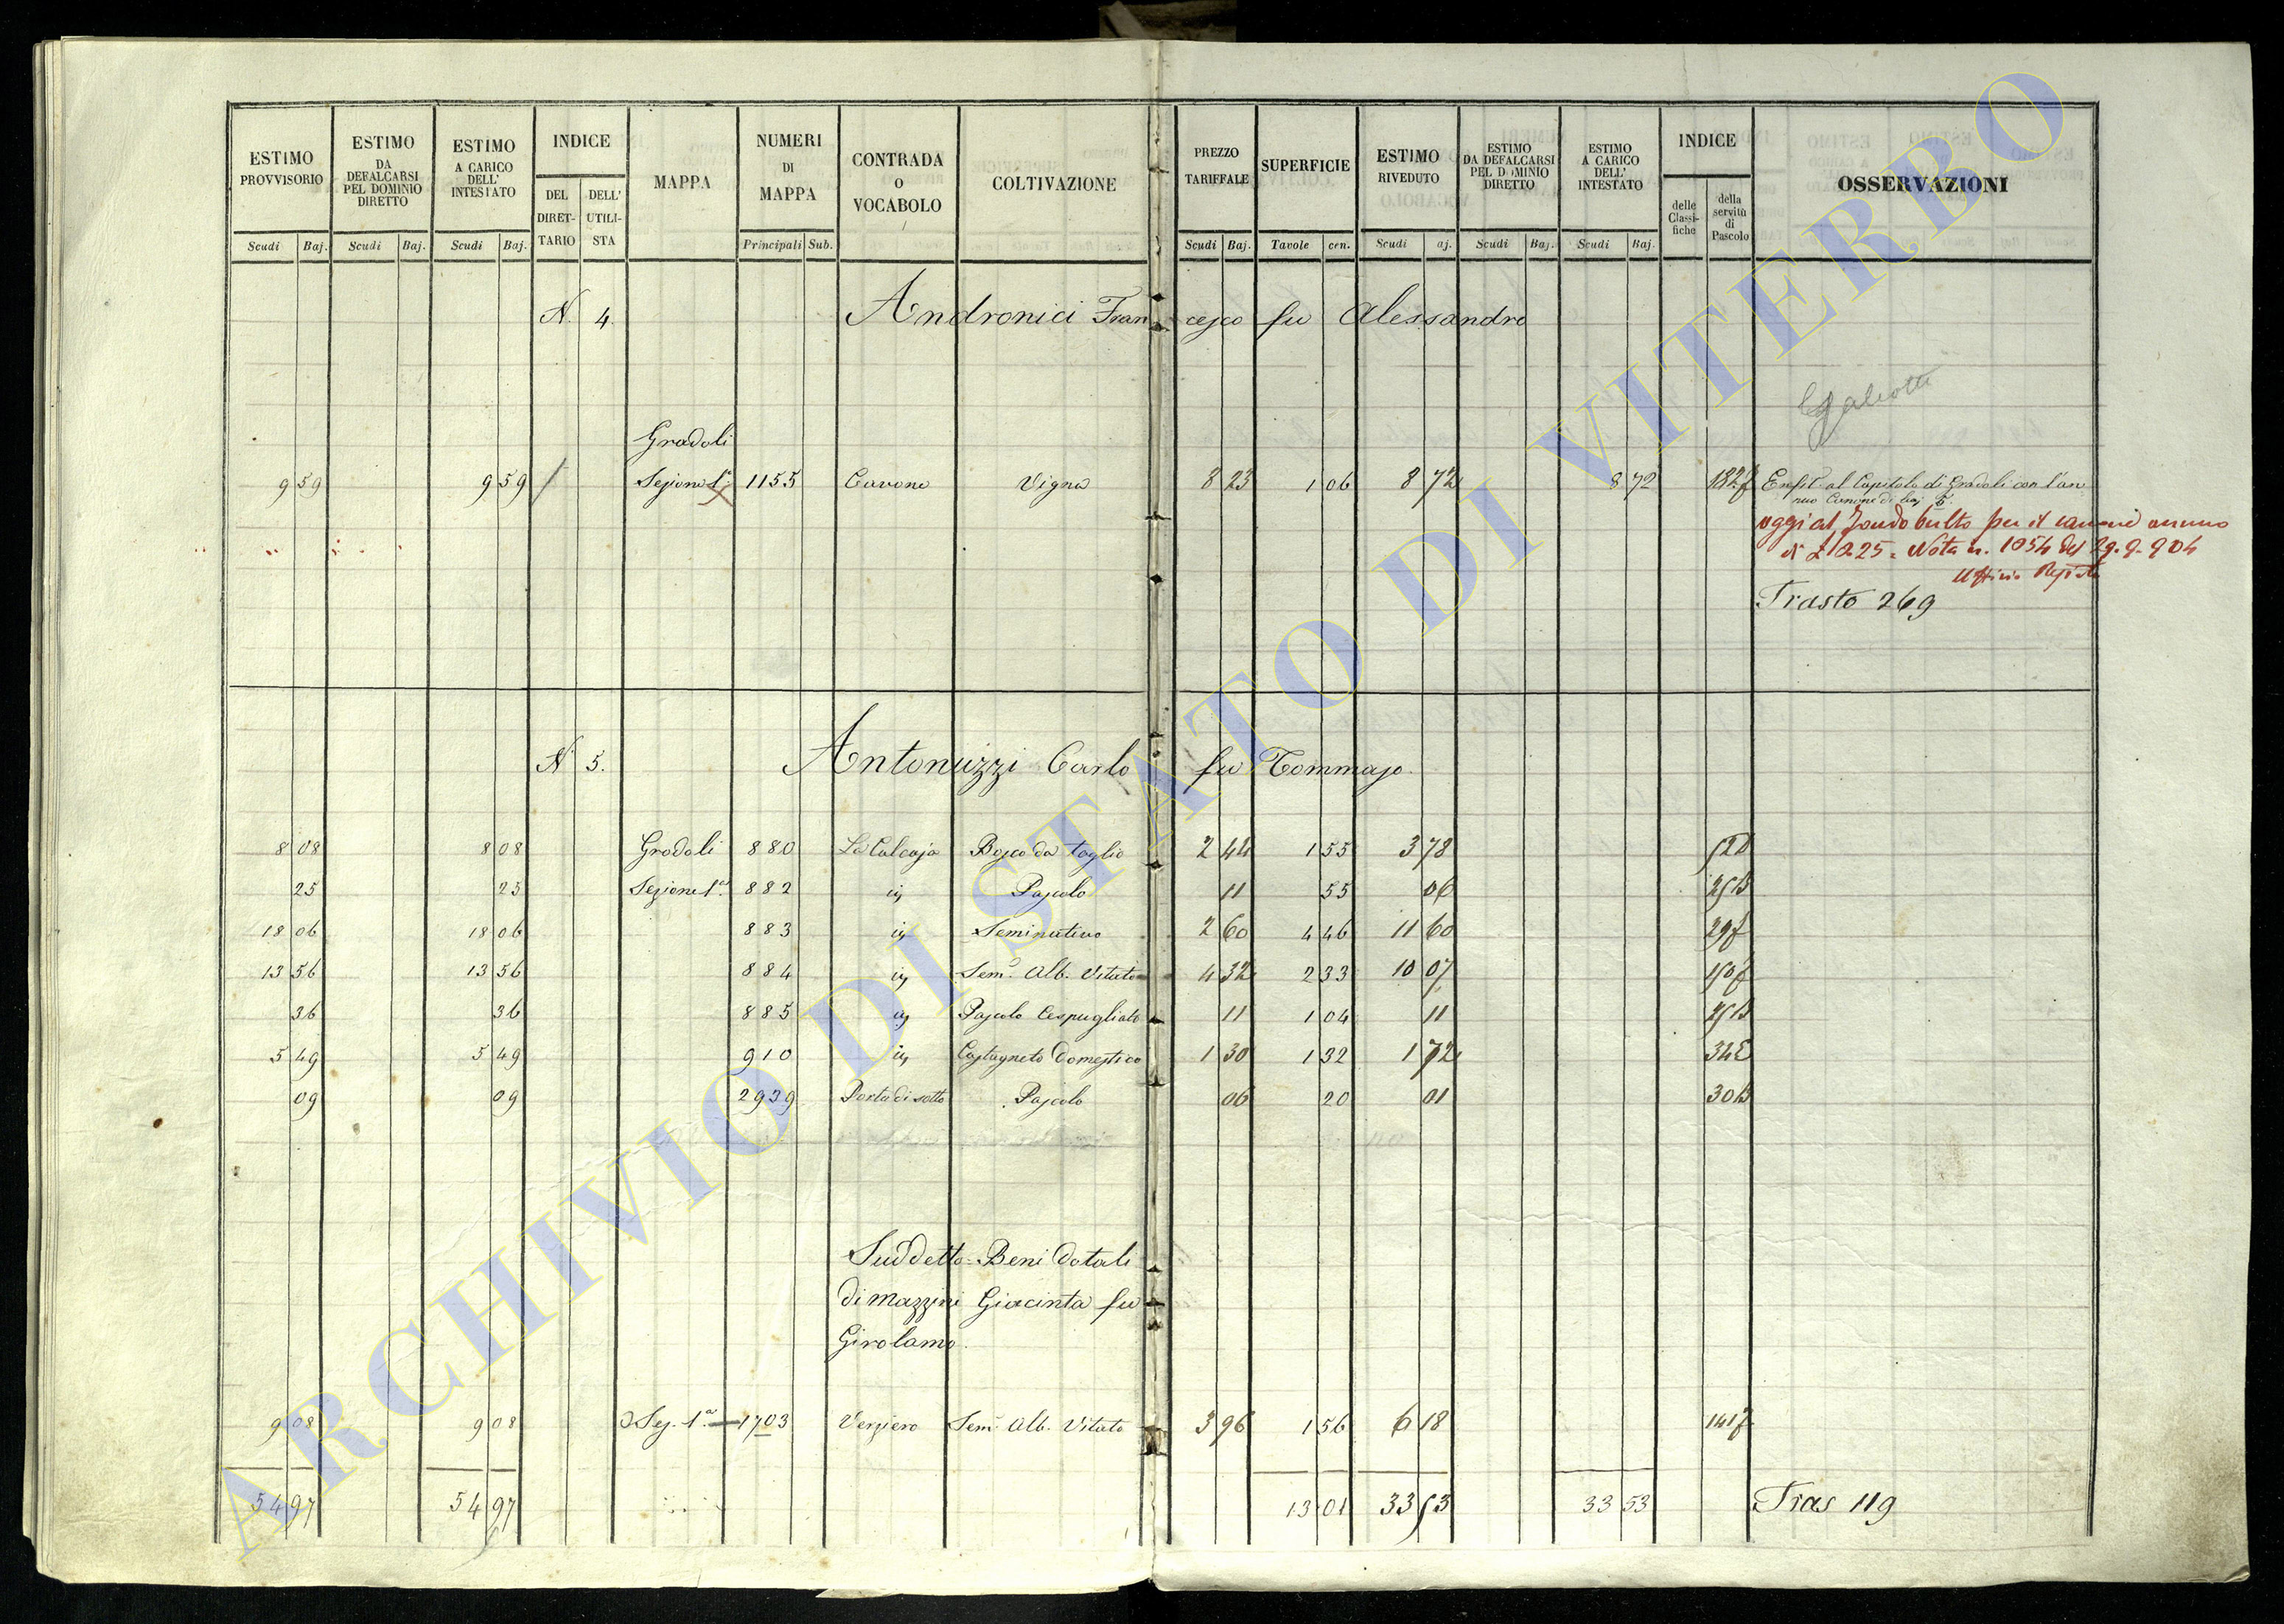 ESTIMO PROVVISORIO Scudi Baj. ESTIMO DA DEFALCARSI PEL DOMINIO DIRETTO Scudi Baj. ESTIMO A CARICO DELL' INTESTATO Scudi Baj. INDICE DEL DIRET-TARIO DELL' UTILI-STA MAPPA NUMERI DI MAPPA Principali Sub. CONTRADA O VOCABOLO COLTIVAZIONE PREZZO TARIFFALE Scudi Baj. SUPERFICIE Tavole cen. ESTIMO RIVEDUTO Scudi aj. ESTIMO DA DEFALCARSI PEL DOMINIO DIRETTO Scudi Baj. ESTIMO A CARICO DELL' INTESTATO Scudi Baj. INDICE delle Classi-fiche della servitù di Pascolo OSSERVAZIONI
N. 4. Andronici Francesco fu Alessandro
Galeotti
Gradoli
9 59 9 59 Sezione 1ª 1155 Cavone Vigna 8 23 1 06 8 72 8 72 182 f Enfit. al Capitolo di Gradoli con l'an
nuo Canone di baj 5.
oggi al Fondo Culto per il canone annuo
di £ 0.25 = Nota n. 1054 del 29.9.904
Ufficio Registro
Trasto 269
N. 5. Antonuzzi Carlo fu Tommaso.
8 08 8 08 Gradoli 880 La Calcaja Bosco da taglio 2 44 1 55 3 78 52 D
25 25 Sezione 1ª 882 in Pascolo 11 55 06 25 B
18 06 18 06 883 in Seminativo 2 60 4 46 11 60 29 f
13 56 13 56 884 in Sem.º Alb. Vitato 4 32 2 33 10 07 150 f
36 36 885 in Pascolo Cespugliato 11 1 04 11 25 B
5 49 5 49 910 in Castagneto Domestico 1 30 1 32 1 72 34 E
09 09 2939 Porta di sotto Pascolo 06 20 01 30 B
Suddetto = Beni Dotali
di Mazzini Giacinta fu
Girolamo.
9 08 9 08 Sez. 1ª 1703 Verziero Sem. Alb. Vitato 3 96 1 56 6 18 141 f
54 97 54 97 13 01 33 53 33 53 Tras 119
ARCHIVIO DI STATO DI VITERBO